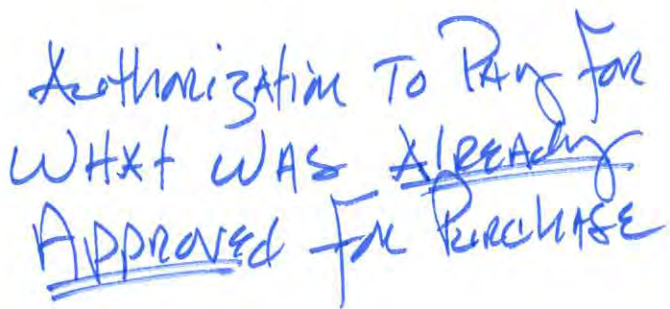 Authorization To Pay For
WHAt WAS AlREAdy
APPROVEd For PURCHASE